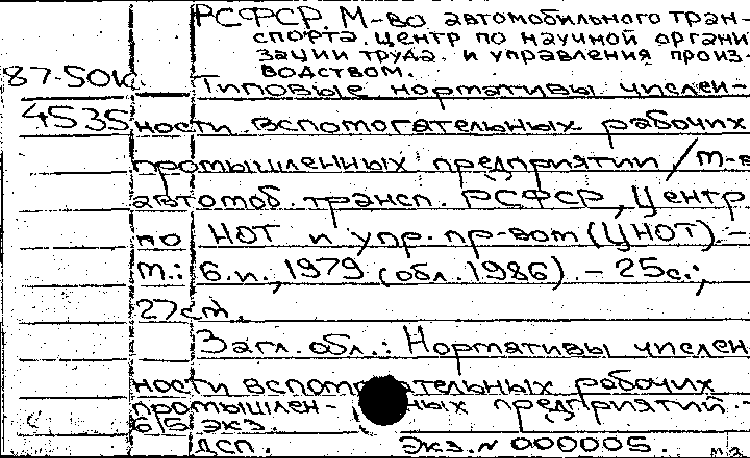 РСФСР. М-во автомобильного тран-
спорта. Центр по научной органи
зации труда и управления произ-
водством.
87-50к
Типовые нормативы числен-
4535
ности вспомогательных рабочих
промышленных предприятий / М-в
автомоб. трансп. РСФСР, Центр
по НОТ и упр. пр-вом (ЦНОТ). -
М.: б.и., 1979 (обл. 1986). - 25с.;
27см.
Загл. обл.: Нормативы числен
ности вспомогательных рабочих
промышлен- ных предприятий.-
б/б экз.
ДСП. Экз. № 000005.